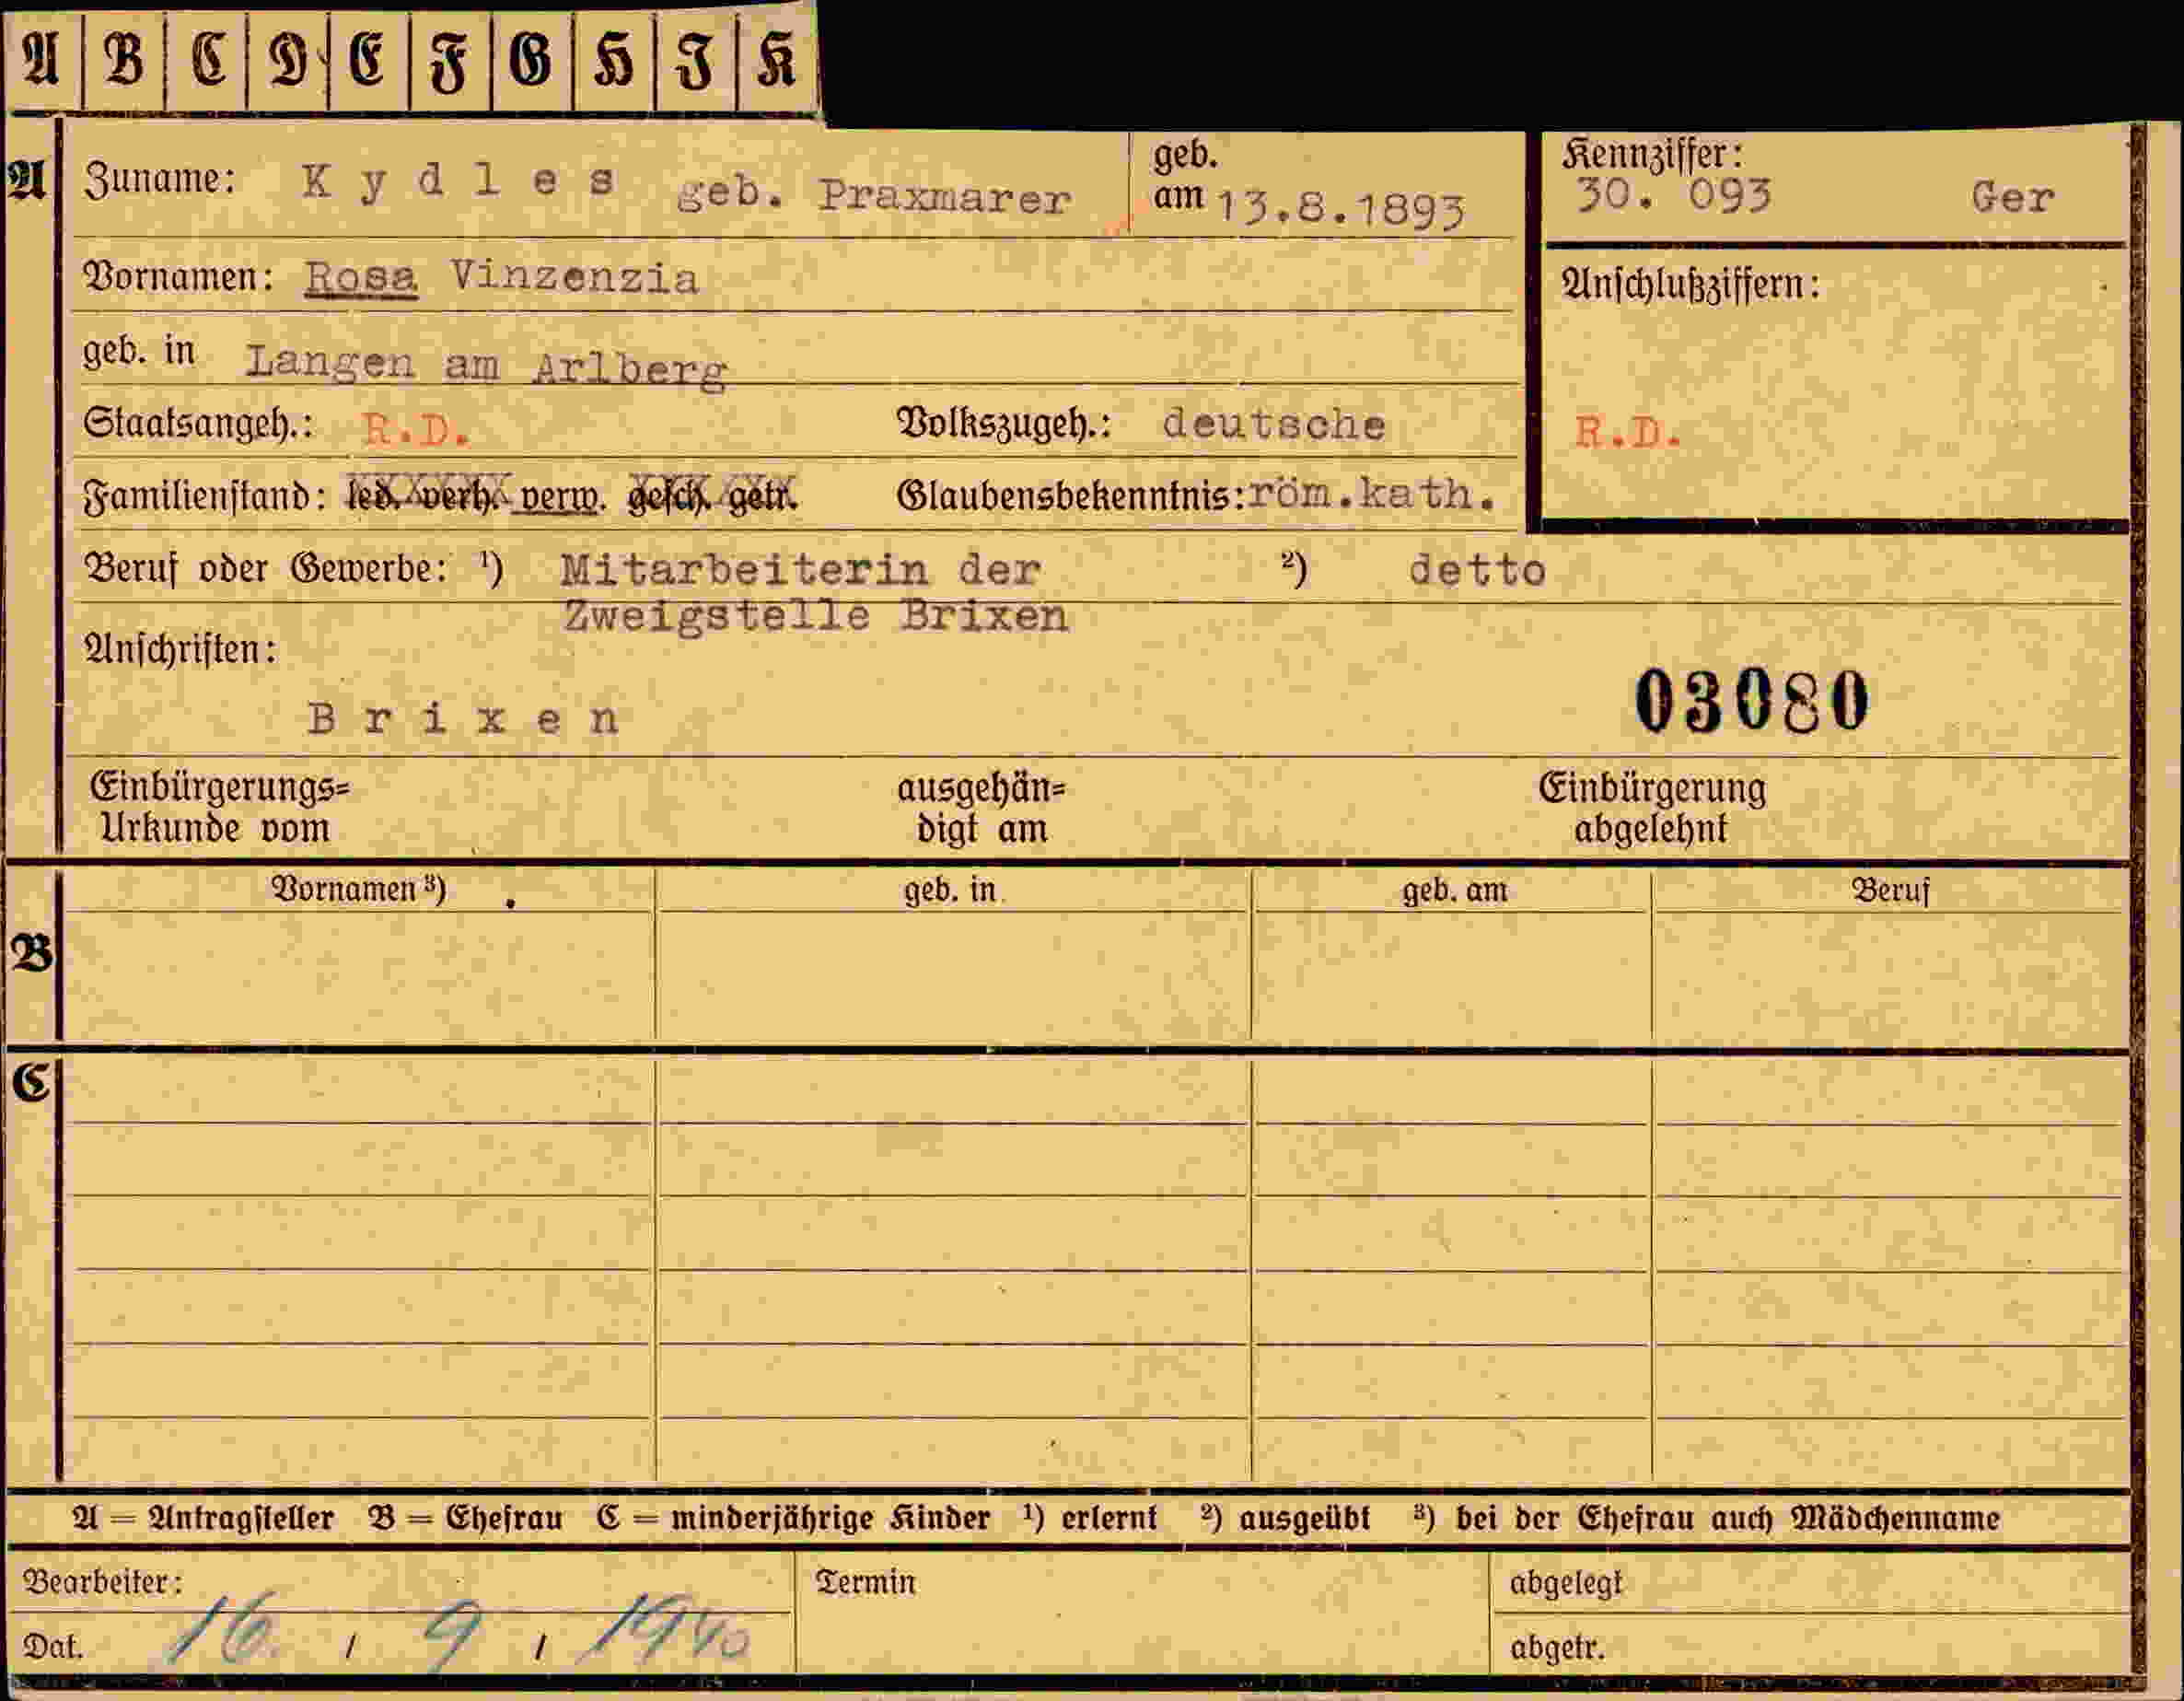 A B C D E F G H I K
A Zuname: Kydles geb. Praxmarer geb. am 13.8.1893
Kennziffer:
30. 093 Ger
Vornamen: Rosa Vinzenzia
Anschlußziffern:
geb. in Langen am Arlberg
Staatsangeh.: R.D. Volkszugeh.: deutsche
R.D.
Familienstand: led. verh. verw. gesch. getr. Glaubensbekenntnis: röm.kath.
Beruf oder Gewerbe: ¹) Mitarbeiterin der ²) detto
Zweigstelle Brixen
Anschriften:
Brixen
03080
Einbürgerungs= ausgehän= Einbürgerung
Urkunde vom digt am abgelehnt
Vornamen ³) geb. in geb. am Beruf
B
C
A = Antragsteller B = Ehefrau C = minderjährige Kinder ¹) erlernt ²) ausgeübt ³) bei der Ehefrau auch Mädchenname
Bearbeiter: Termin abgelegt
Dat. 16. / 9 / 1940 abgetr.